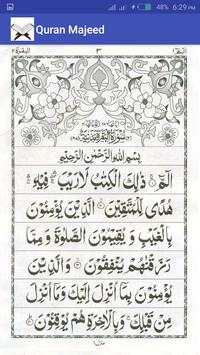 48% 6:29 PM
Quran Majeed
البقرة ٢
٣
بِسْمِ اللهِ الرَّحْمٰنِ الرَّحِيْمِ
الٓمّٓ ۚ ذٰلِكَ الْكِتٰبُ لَا رَيْبَ ۛ فِيْهِ ۛ
هُدًى لِّلْمُتَّقِيْنَ ۙ الَّذِيْنَ يُؤْمِنُوْنَ
بِالْغَيْبِ وَ يُقِيْمُوْنَ الصَّلٰوةَ وَ مِمَّا
رَزَقْنٰهُمْ يُنْفِقُوْنَ ۙ وَ الَّذِيْنَ
يُؤْمِنُوْنَ بِمَآ اُنْزِلَ اِلَيْكَ وَ مَآ اُنْزِلَ
مِنْ قَبْلِكَ ۚ وَ بِالْاٰخِرَةِ هُمْ يُوْقِنُوْنَ